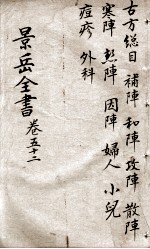 古方總目 補陣 和陣 攻陣 散陣
寒陣 熱陣 因陣 婦人 小兒
痘疹 外科
景岳全書 卷五十二